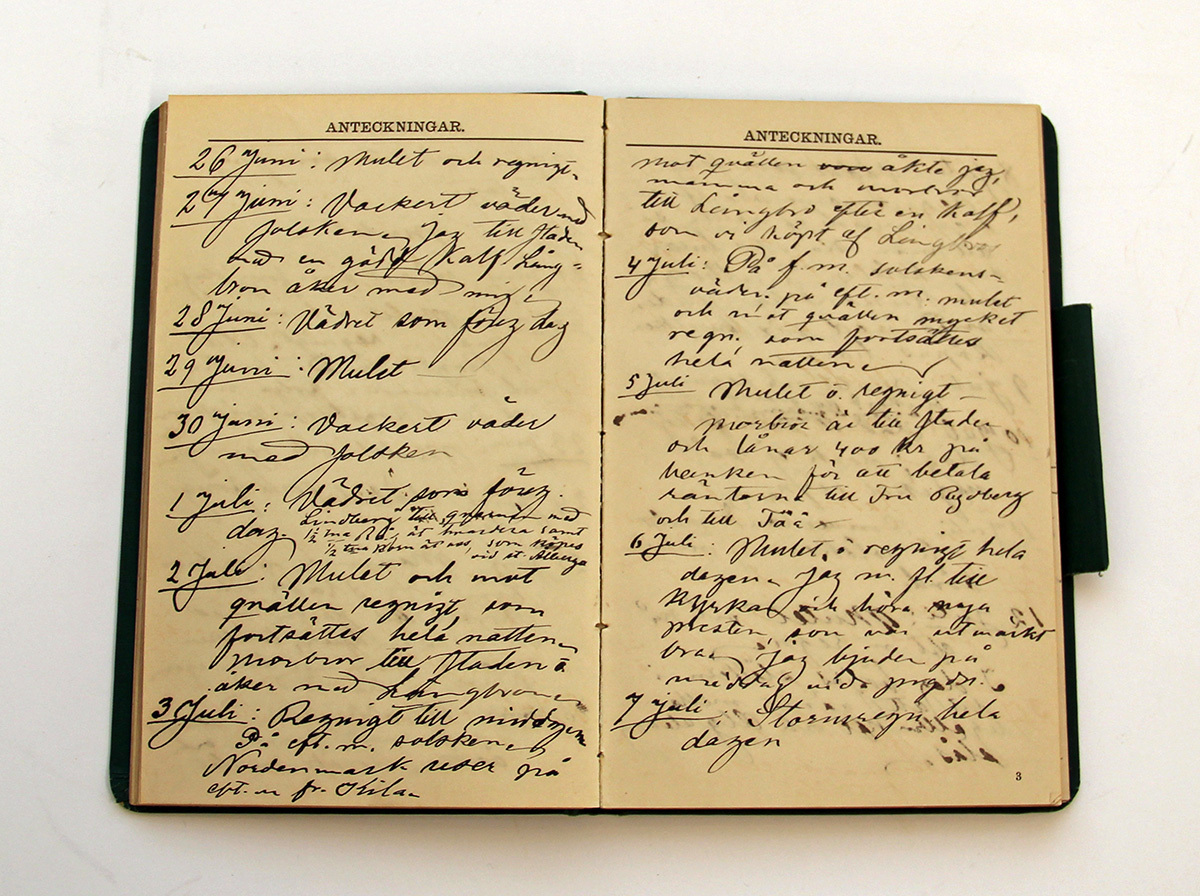 ANTECKNINGAR.
26 Juni: Mulet och regnigt.
27 Juni: Vackert väder med
solsken. Jag till staden
med en gödd kalf Lång-
bron åker med mig.
28 Juni: Vädret som föreg dag
29 Juni: Mulet
30 Juni: Vackert väder
med solsken
1 Juli: Vädret som föreg.
dag. Lindberg till qvarnen med
1/2 tna Råg åt hvardera samt
1/2 tna Korn åt oss, som köpes
vid st. Allberga
2 Juli: Mulet och mot
qvällen regnigt, som
fortsättes hela natten.
Morbror till staden o
åker med Långbron
3 Juli: Regnigt till middagen
På eft. m. solsken
Nordenmark reser på
eft. m fr. Kila
ANTECKNINGAR.
mot qvällen åkte jag,
mamma och morbror
till Långbro efter en kalf,
som vi köpt af Långbron
4 Juli: På f. m. solskens-
väder. på eft. m. mulet
och mot qvällen mycket
regn, som fortsättes
hela natten
5 Juli Mulet o. regnigt
morbror är till staden
och lånar 400 kr på
banken för att betala
räntorna till Fru Rydberg
och till Tää
6 Juli: Mulet o regnigt hela
dagen. Jag m. fl. till
Kyrkan och höra nya
presten, som var utmärkt
bra. Jag bjuden på
middag
7 Juli: Stormregn hela
dagen
3